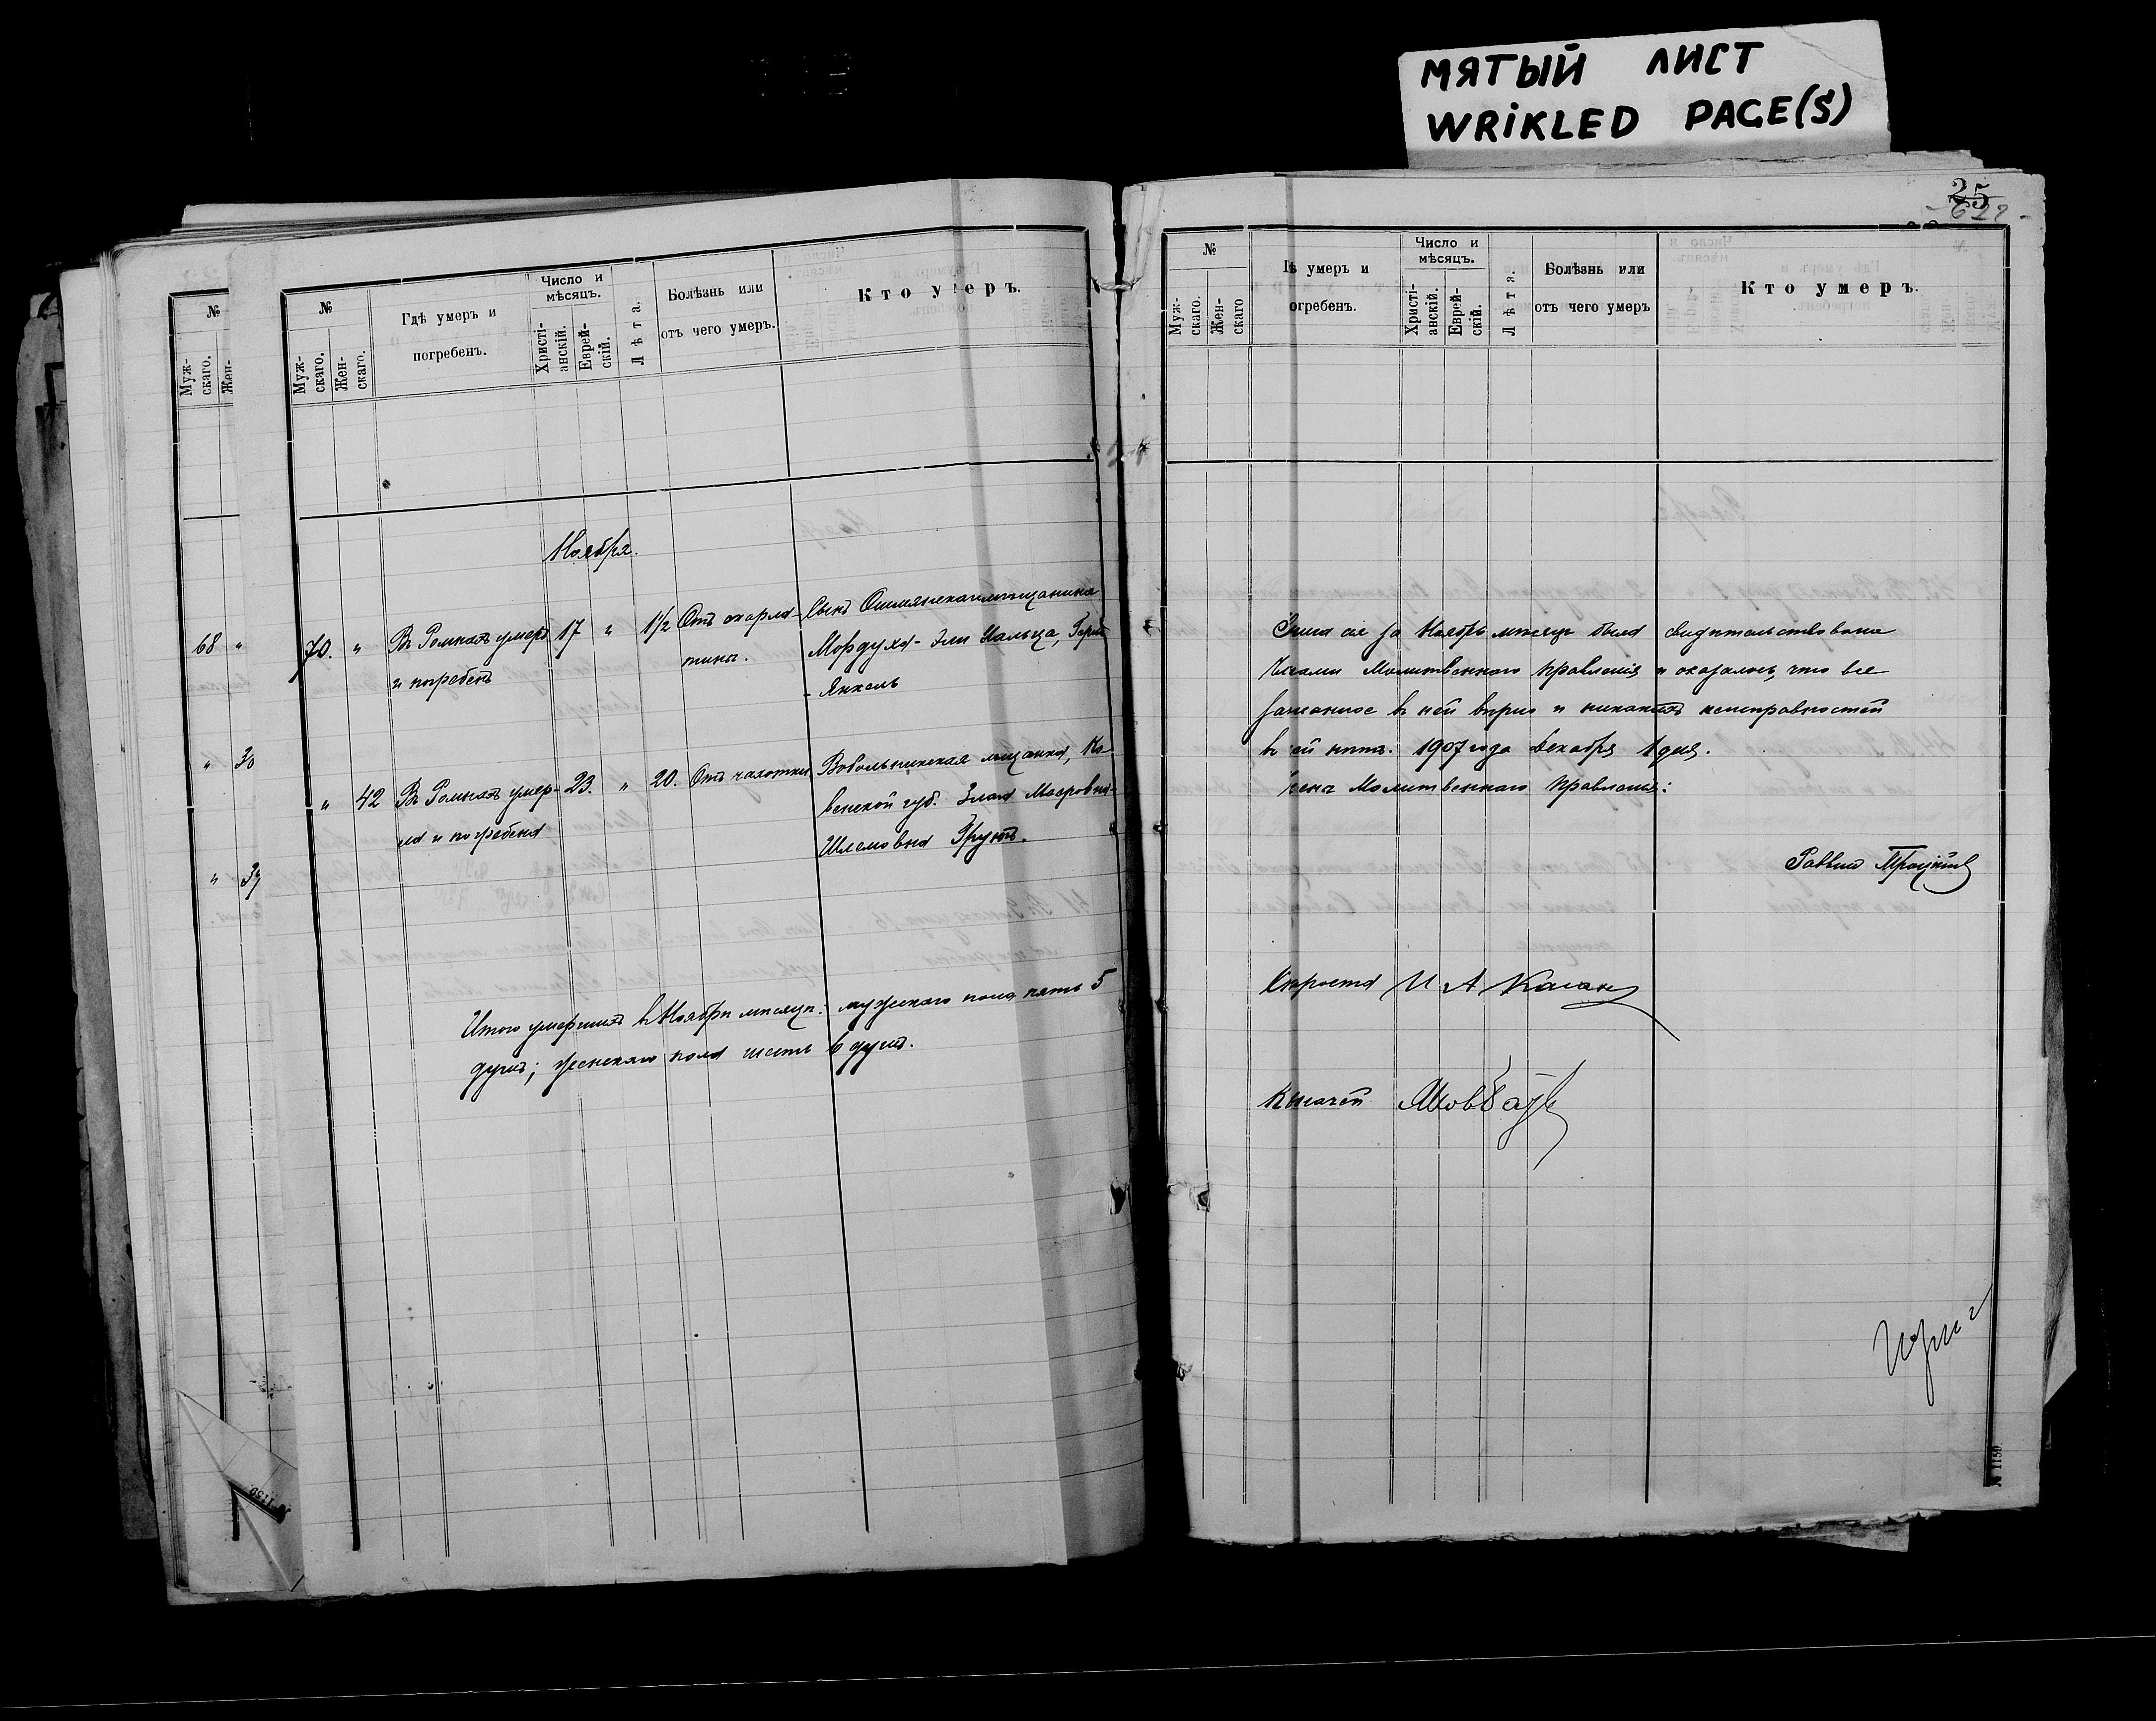 МЯТЫЙ ЛИСТ
WRIKLED PAGE(S)
№
Муж-
скаго.
Жен-
68 "
" 30
"
№ 1150
№
Муж-
скаго.
Жен-
скаго.
Гдѣ умеръ и
погребенъ.
Число и
мѣсяцъ.
Христі-
анскій.
Еврей-
скій.
Лѣта.
Болѣзнь или
отъ чего умеръ.
Кто умеръ.
Ноября.
70. " Въ умеръ 17 " 1½ Отъ скарла- Сынъ Ошмянскаго мѣщанина
и погребенъ тины. Мордуха-Эли
-Янкель
" 42 Въ умер- 23. " 20. Отъ чахотки мѣщанка, Ко-
ла и погребена венской губ. Злата
Шлемовна
Итого умершихъ въ Ноябрѣ мѣсяцѣ: мужескаго пола пять 5
душъ; женскаго пола шесть 6 душъ.
25
№
Муж-
скаго.
Жен-
скаго
ѣ умеръ и
огребенъ.
Число и
мѣсяцъ.
Христі-
анскій.
Еврей-
скій.
Лѣта.
Болѣзнь или
отъ чего умеръ
Кто умеръ.
сія за Ноябрь мѣсяцъ была свидѣтельствована
Членами Молитвеннаго Правленія и оказалось, что все
записанное въ ней вѣрно и никакихъ неисправностей
въ ней нѣтъ. 1907 года Декабря 1 дня.
Члены Молитвеннаго Правленія:
Раввин
Староста И А Каган
Казначей
№ 1150